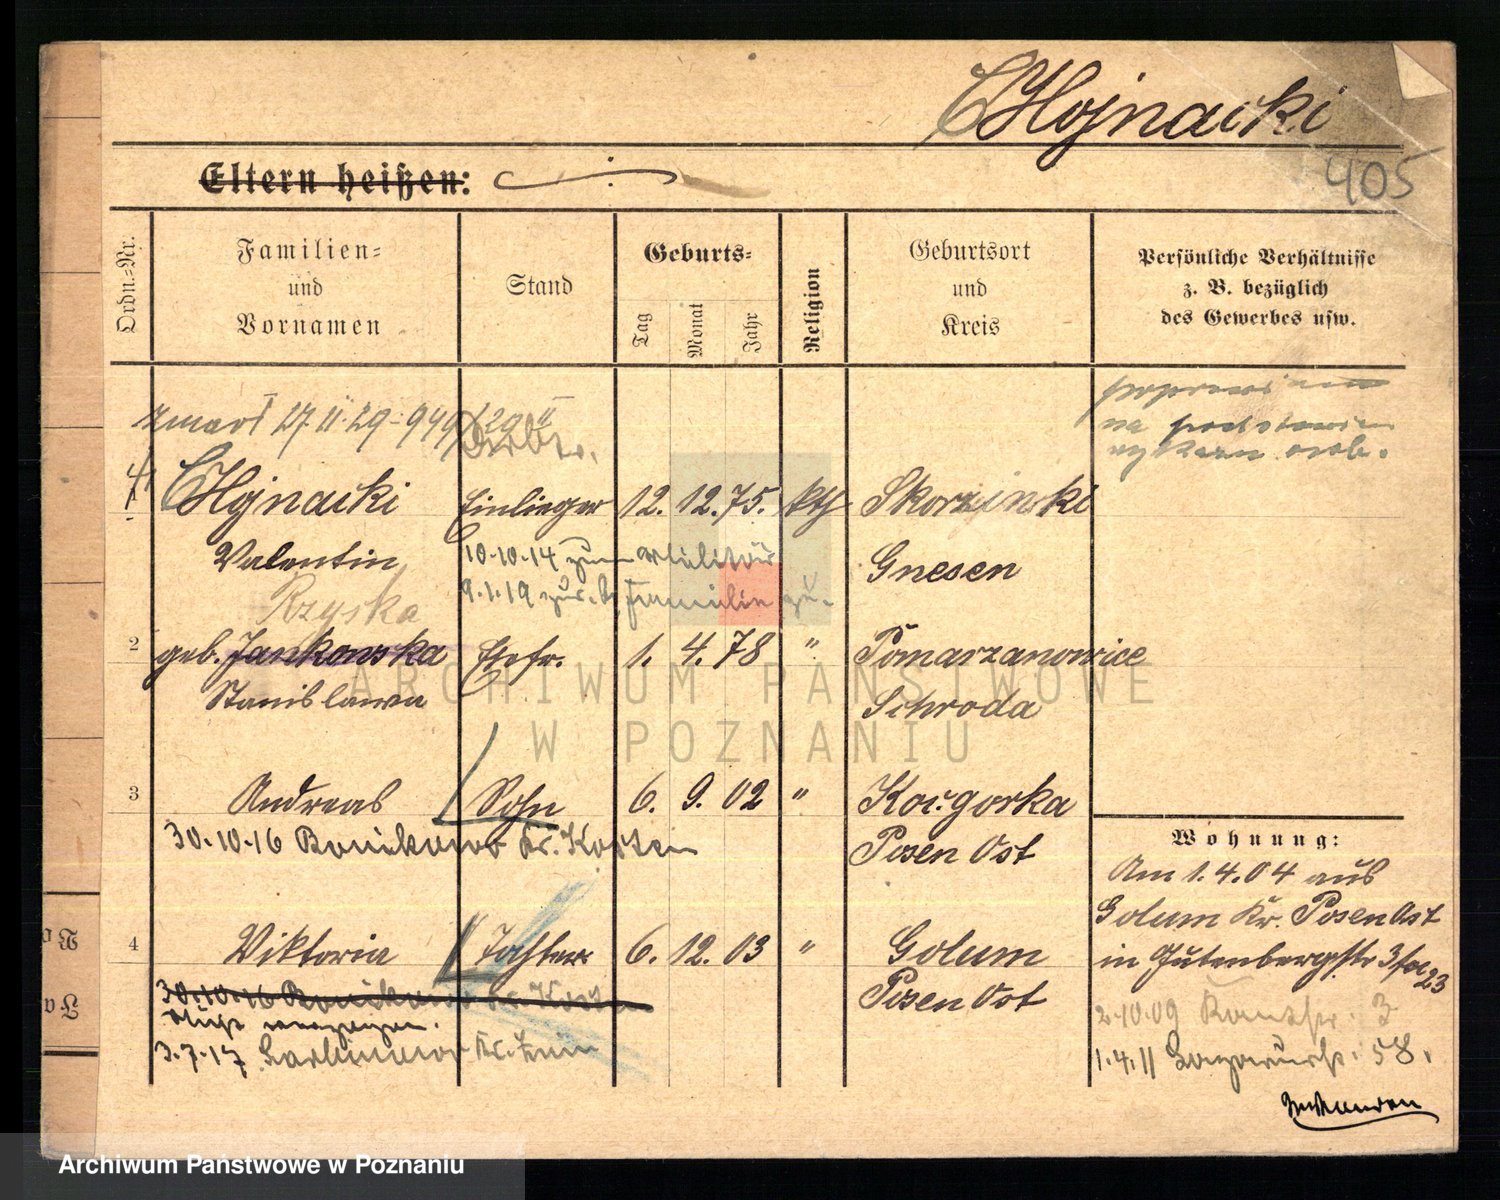 CHojnacki
405
Eltern heißen:
Ordn.-Nr.
Familien-
und
Vornamen
Stand
Geburts-
Tag
Monat
Jahr
Religion
Geburtsort
und
Kreis
Persönliche Verhältnisse
z. B. bezüglich
des Gewerbes usw.
zmarł 27.II.29-949/29 II
na podstawie
wykazu osob.
1
CHojnacki Einlieger 12. 12. 75. kth Skorzinski
Valentin 10.10.14 zum Militär Gnesen
9.1.19 zur. Familie
Rzyska
2 geb. Jankowska Ehefr. 1. 4. 78 " Pomarzanowice
Stanislawa Schroda
3 Andreas Sohn 6. 9. 02 " Kocgorka
30.10.16 Bonikowo Kr. Kosten Posen Ost
Wohnung:
Am 1.4.04 aus
Golum Kr. Posen Ost
in Gutenbergstr 3
4 Viktoria Tochter 6. 12. 03 " Golum
30.10.16 Bonikowo Kr. Kosten Posen Ost
nicht verzogen.
3.7.17 Kr. Znin
2.10.09 3
1.4.11 58.
ARCHIWUM PAŃSTWOWE
W POZNANIU
Archiwum Państwowe w Poznaniu